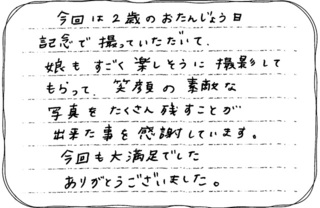 今回は2歳のおたんじょう日
記念で撮っていただいて、
娘もすごく楽しそうに撮影して
もらって、笑顔の素敵な
写真をたくさん残すことが
出来た事を感謝しています。
今回も大満足でした
ありがとうございました。